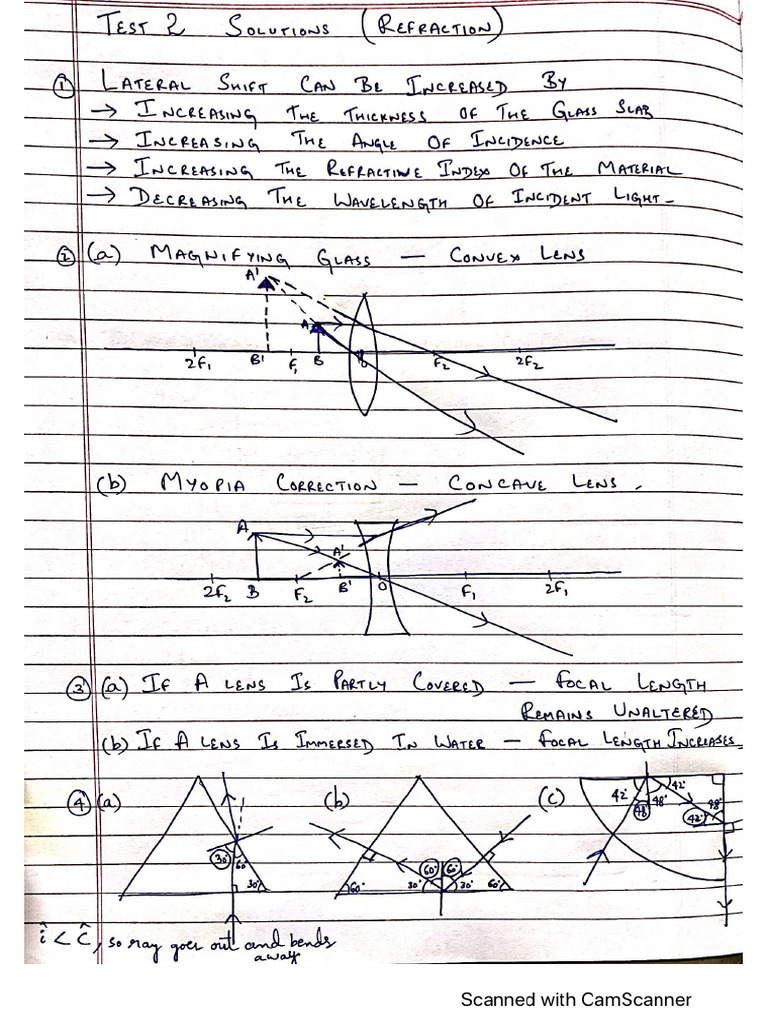 TEST 2 SOLUTIONS (REFRACTION)
① LATERAL SHIFT CAN BE INCREASED BY
→ INCREASING THE THICKNESS OF THE GLASS SLAB
→ INCREASING THE ANGLE OF INCIDENCE
→ INCREASING THE REFRACTIVE INDEX OF THE MATERIAL
→ DECREASING THE WAVELENGTH OF INCIDENT LIGHT-
② (a) MAGNIFYING GLASS – CONVEX LENS
A'
A
2F₁ B' F₁ B O F₂ 2F₂
(b) MYOPIA CORRECTION – CONCAVE LENS.
A
A'
2F₂ B F₂ B' O F₁ 2F₁
③ (a) IF A LENS IS PARTLY COVERED – FOCAL LENGTH
REMAINS UNALTERED
(b) IF A LENS IS IMMERSED IN WATER – FOCAL LENGTH INCREASES
④ (a) (b) (c)
30° 60° 30°
60° 30° 60° 60° 30° 60°
42° 48° 48° 42° 48° 42°
î < ĉ, so ray goes out and bends
away
Scanned with CamScanner